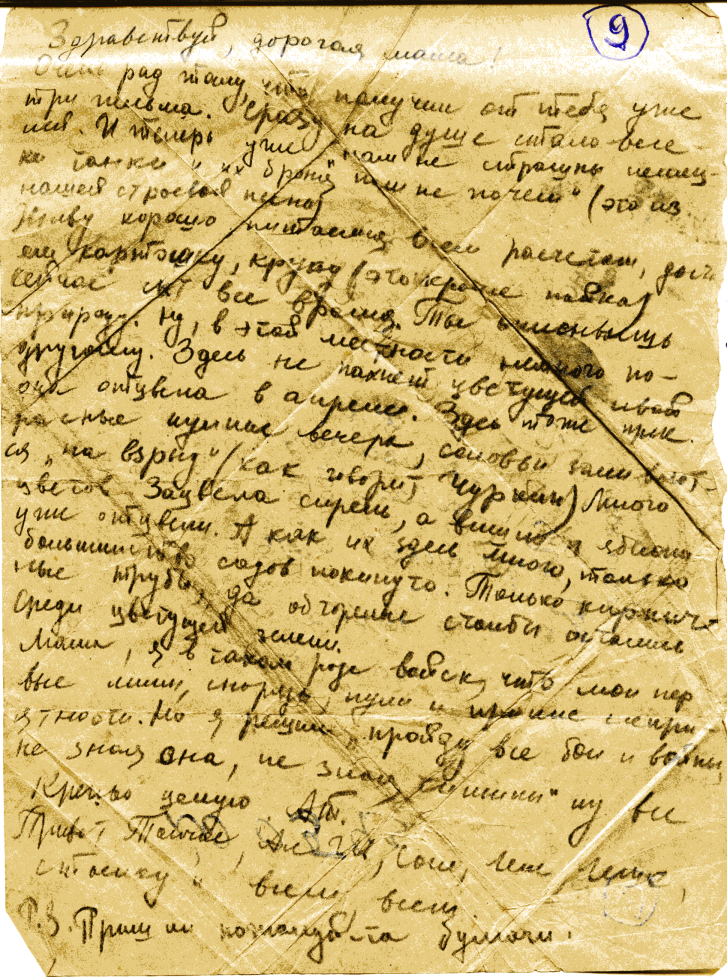 9
Здравствуй, дорогая мама!
Очень рад тому, что получил от тебя уже
три письма. Сразу на душе стало весе-
лей. И теперь уже "нам не страшны немец-
кие танки и их броня нам не почем" (это из
нашей строевой песни)
Живу хорошо питаемся всем расчетом, дост
ем картошку, крупу (это кроме пайка)
сейчас все время. Ты описываешь
природу. Ну, в этой местности немного по-
другому. Здесь не пахнет цветущей ивой
она отцвела в апреле. Здесь тоже прек-
расные лунные вечера, соловьи заливают-
ся "на взрыд" (как говорит Чуркин) Много
цветов. Зацвела сирень, а вишни и яблони
уже отцвели. А как их здесь много, только
большинство садов покинуто. Только кирпич-
ные трубы, да обгорелые столбы остались
среди цветущей зелени.
Мама, я в таком роде войск, что мои пер
вые линии, снаряды, пули и прочие непри-
ятности. Но я решил "пройду все бои и войны,
не зная сна, не зная тишины" ну все
Крепко целую.
Привет Гале,
Стасику и всем, всем
P.S. Пришли пожалуйста бумаги.